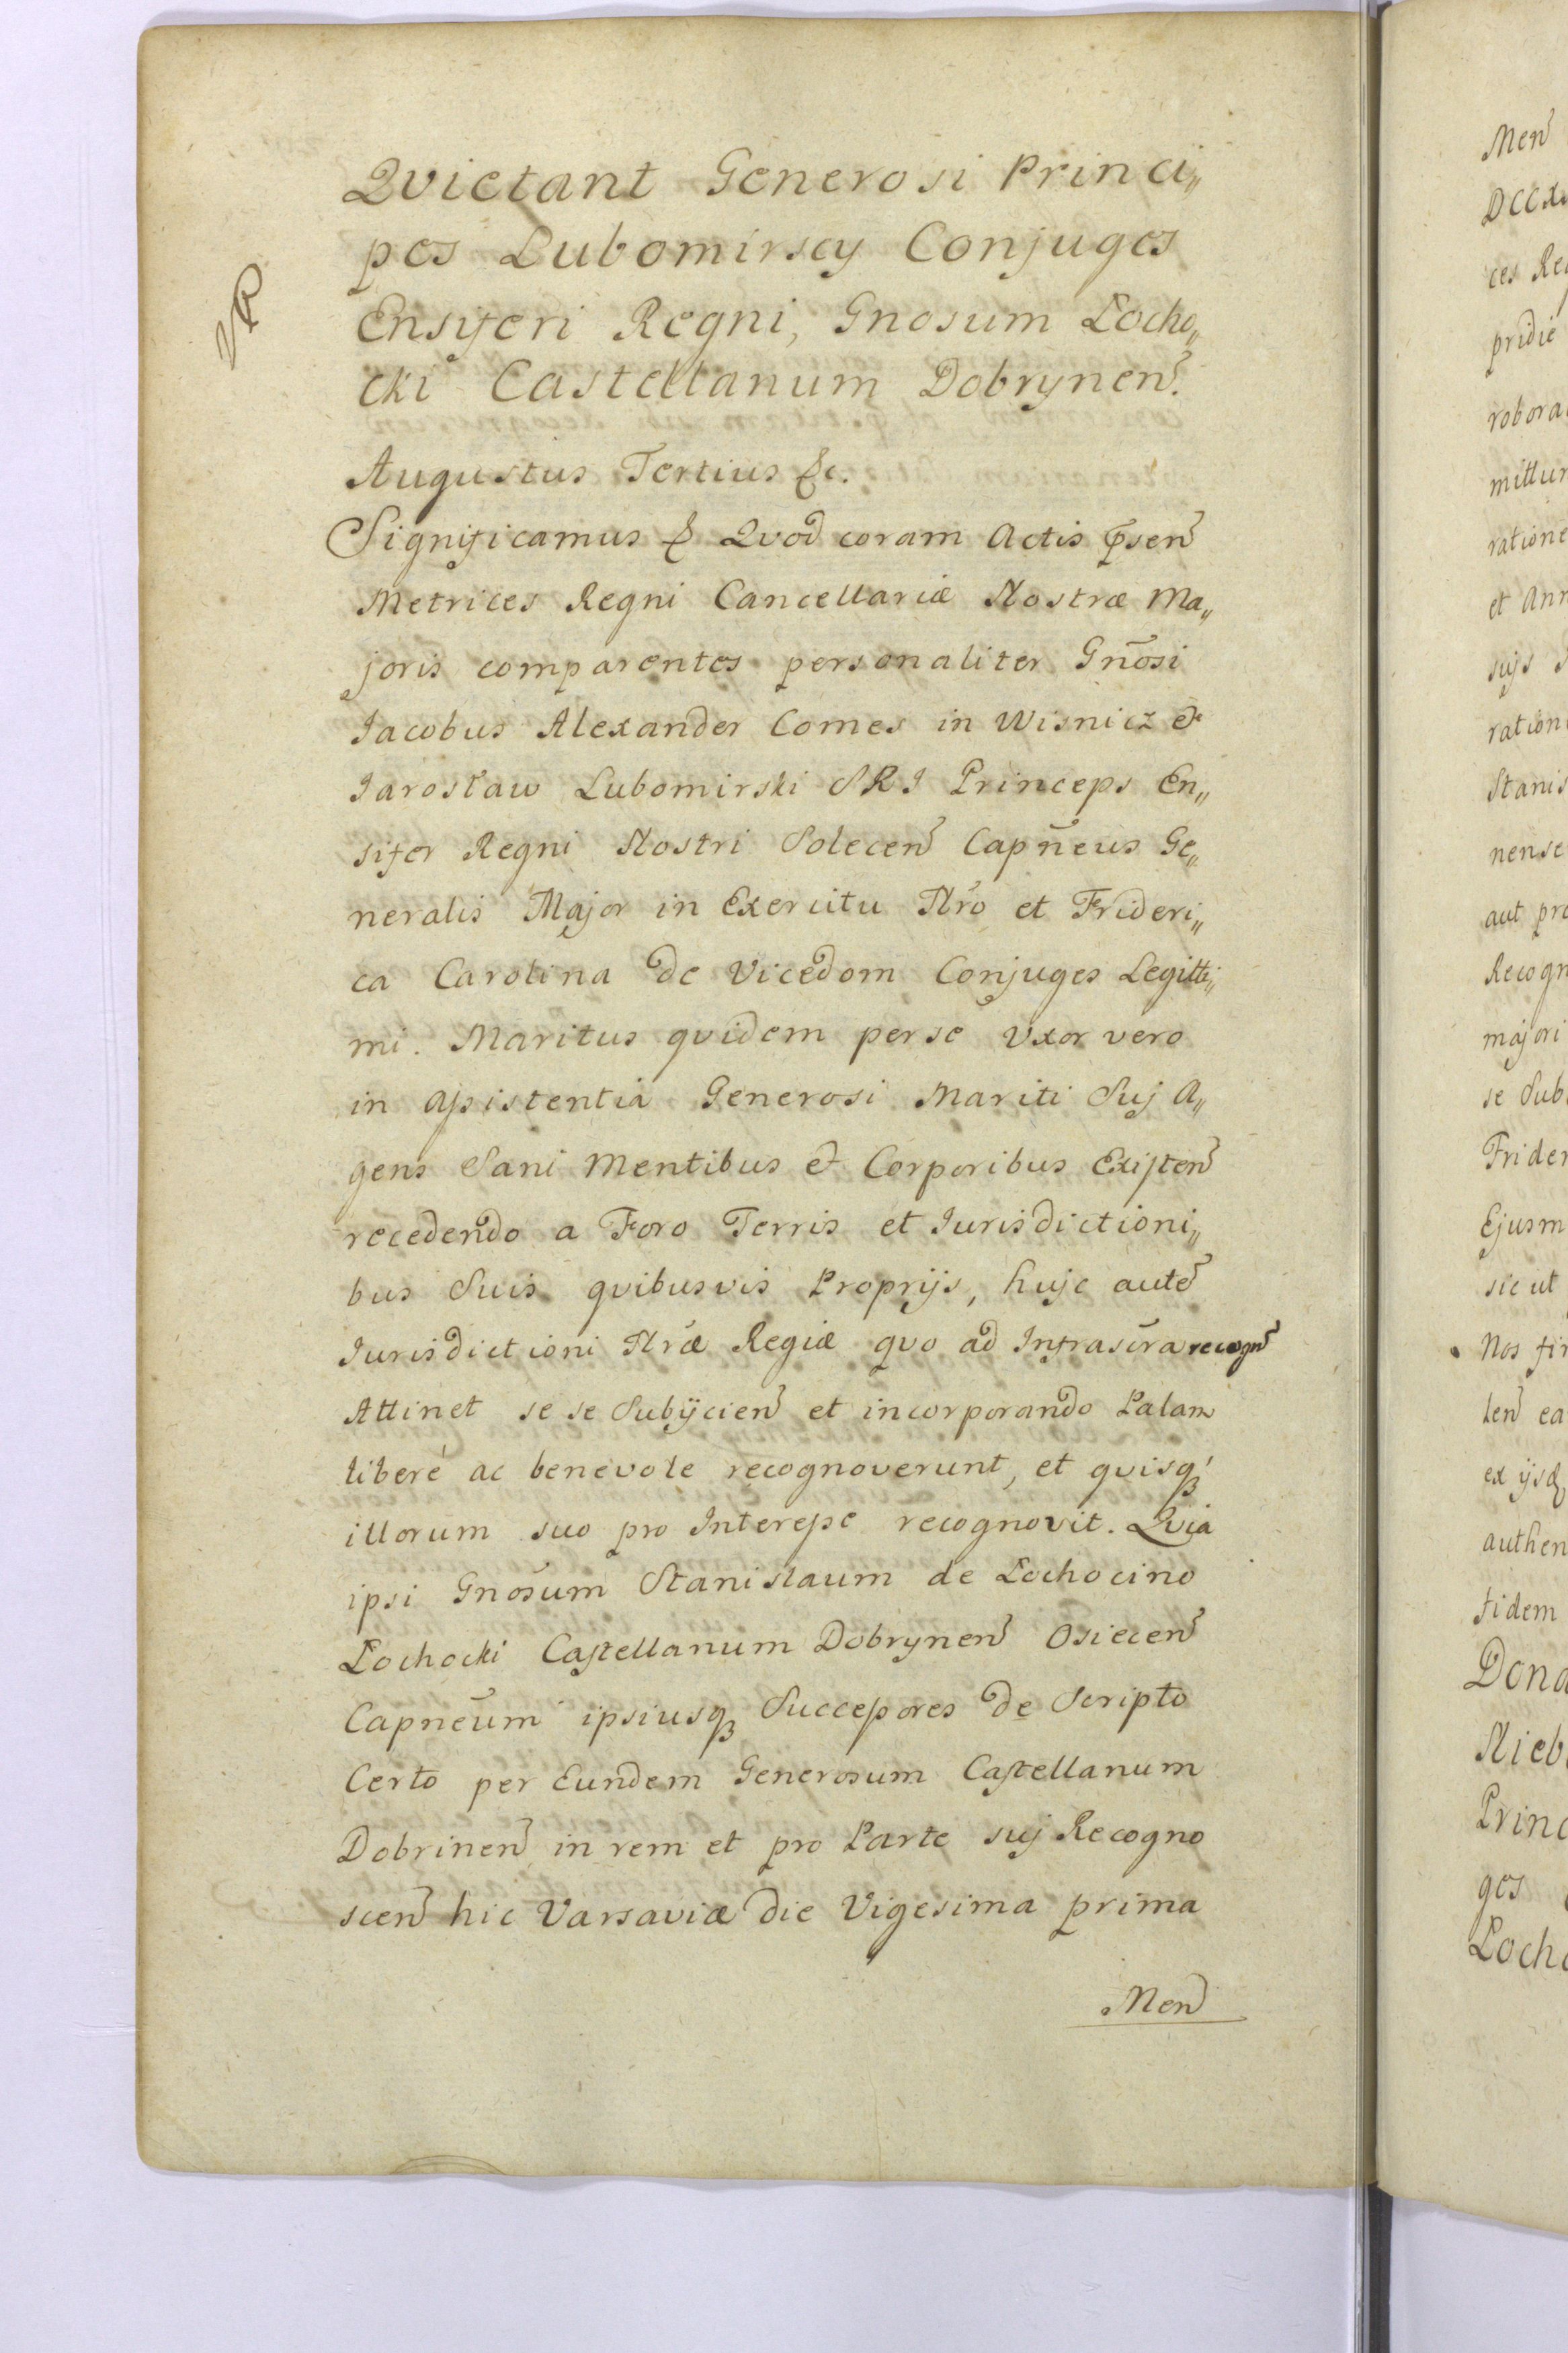 VR
Qvietant Generosi Princi„
pes Lubomirscy Conjuges
Ensiferi Regni, Gnosum Locho„
cki Castellanum Dobrynen̄.
Augustus Tertius &c.
Significamus & Qvod coram Actis p̄sen̄
Metrices Regni Cancellariæ Nostræ Ma„
joris comparentes personaliter Gn̄osi
Jacobus Alexander Comes in Wisnicz &
Jarosław Lubomirski SRJ Princeps En„
sifer Regni Nostri Solecen̄ Capn̄eus Ge„
neralis Major in Exercitu N̄ro et Frideri„
ca Carolina de Vicedom Conjuges Legitti„
mi. Maritus qvidem per se Uxor vero
in assistentia Generosi Mariti Suj A„
gens Sani Mentibus & Corporibus Existen̄
recedendo a Foro Terris et Jurisdictioni„
bus Suis qvibusvis Proprijs, hujc autē
Jurisdictioni N̄ræ Regiæ qvo ad Infrascr̄a recogn̄
Attinet se se Subijcien̄ et incorporando Palam
liberé ac benevole recognoverunt, et qvisq́ꝫ
illorum suo pro Interesse recognovit. Qvia
ipsi Gnōsum Stanislaum de Łochocino
Łochocki Castellanum Dobrynen̄ Osiecen̄
Capnēum ipsiusqꝫ Successores de Scripto
Certo per Eundem Generosum Castellanum
Dobrinen̄ in rem et pro Parte suj Recogno
scen̄ hic Varsaviæ die Vigesima prima
Men̄
Men̄
DCCX
ces Re
pridie
robora
mittur
ratione
et Ann
sujs
ration
Stanis
nense
aut pro
Recogn
majori
se Sub
Frider
Ejusm
sic ut
Nos fir
len̄ ea
ex ijsd
authen
fidem
Dona
Nieb
Princ
ges
Łocho